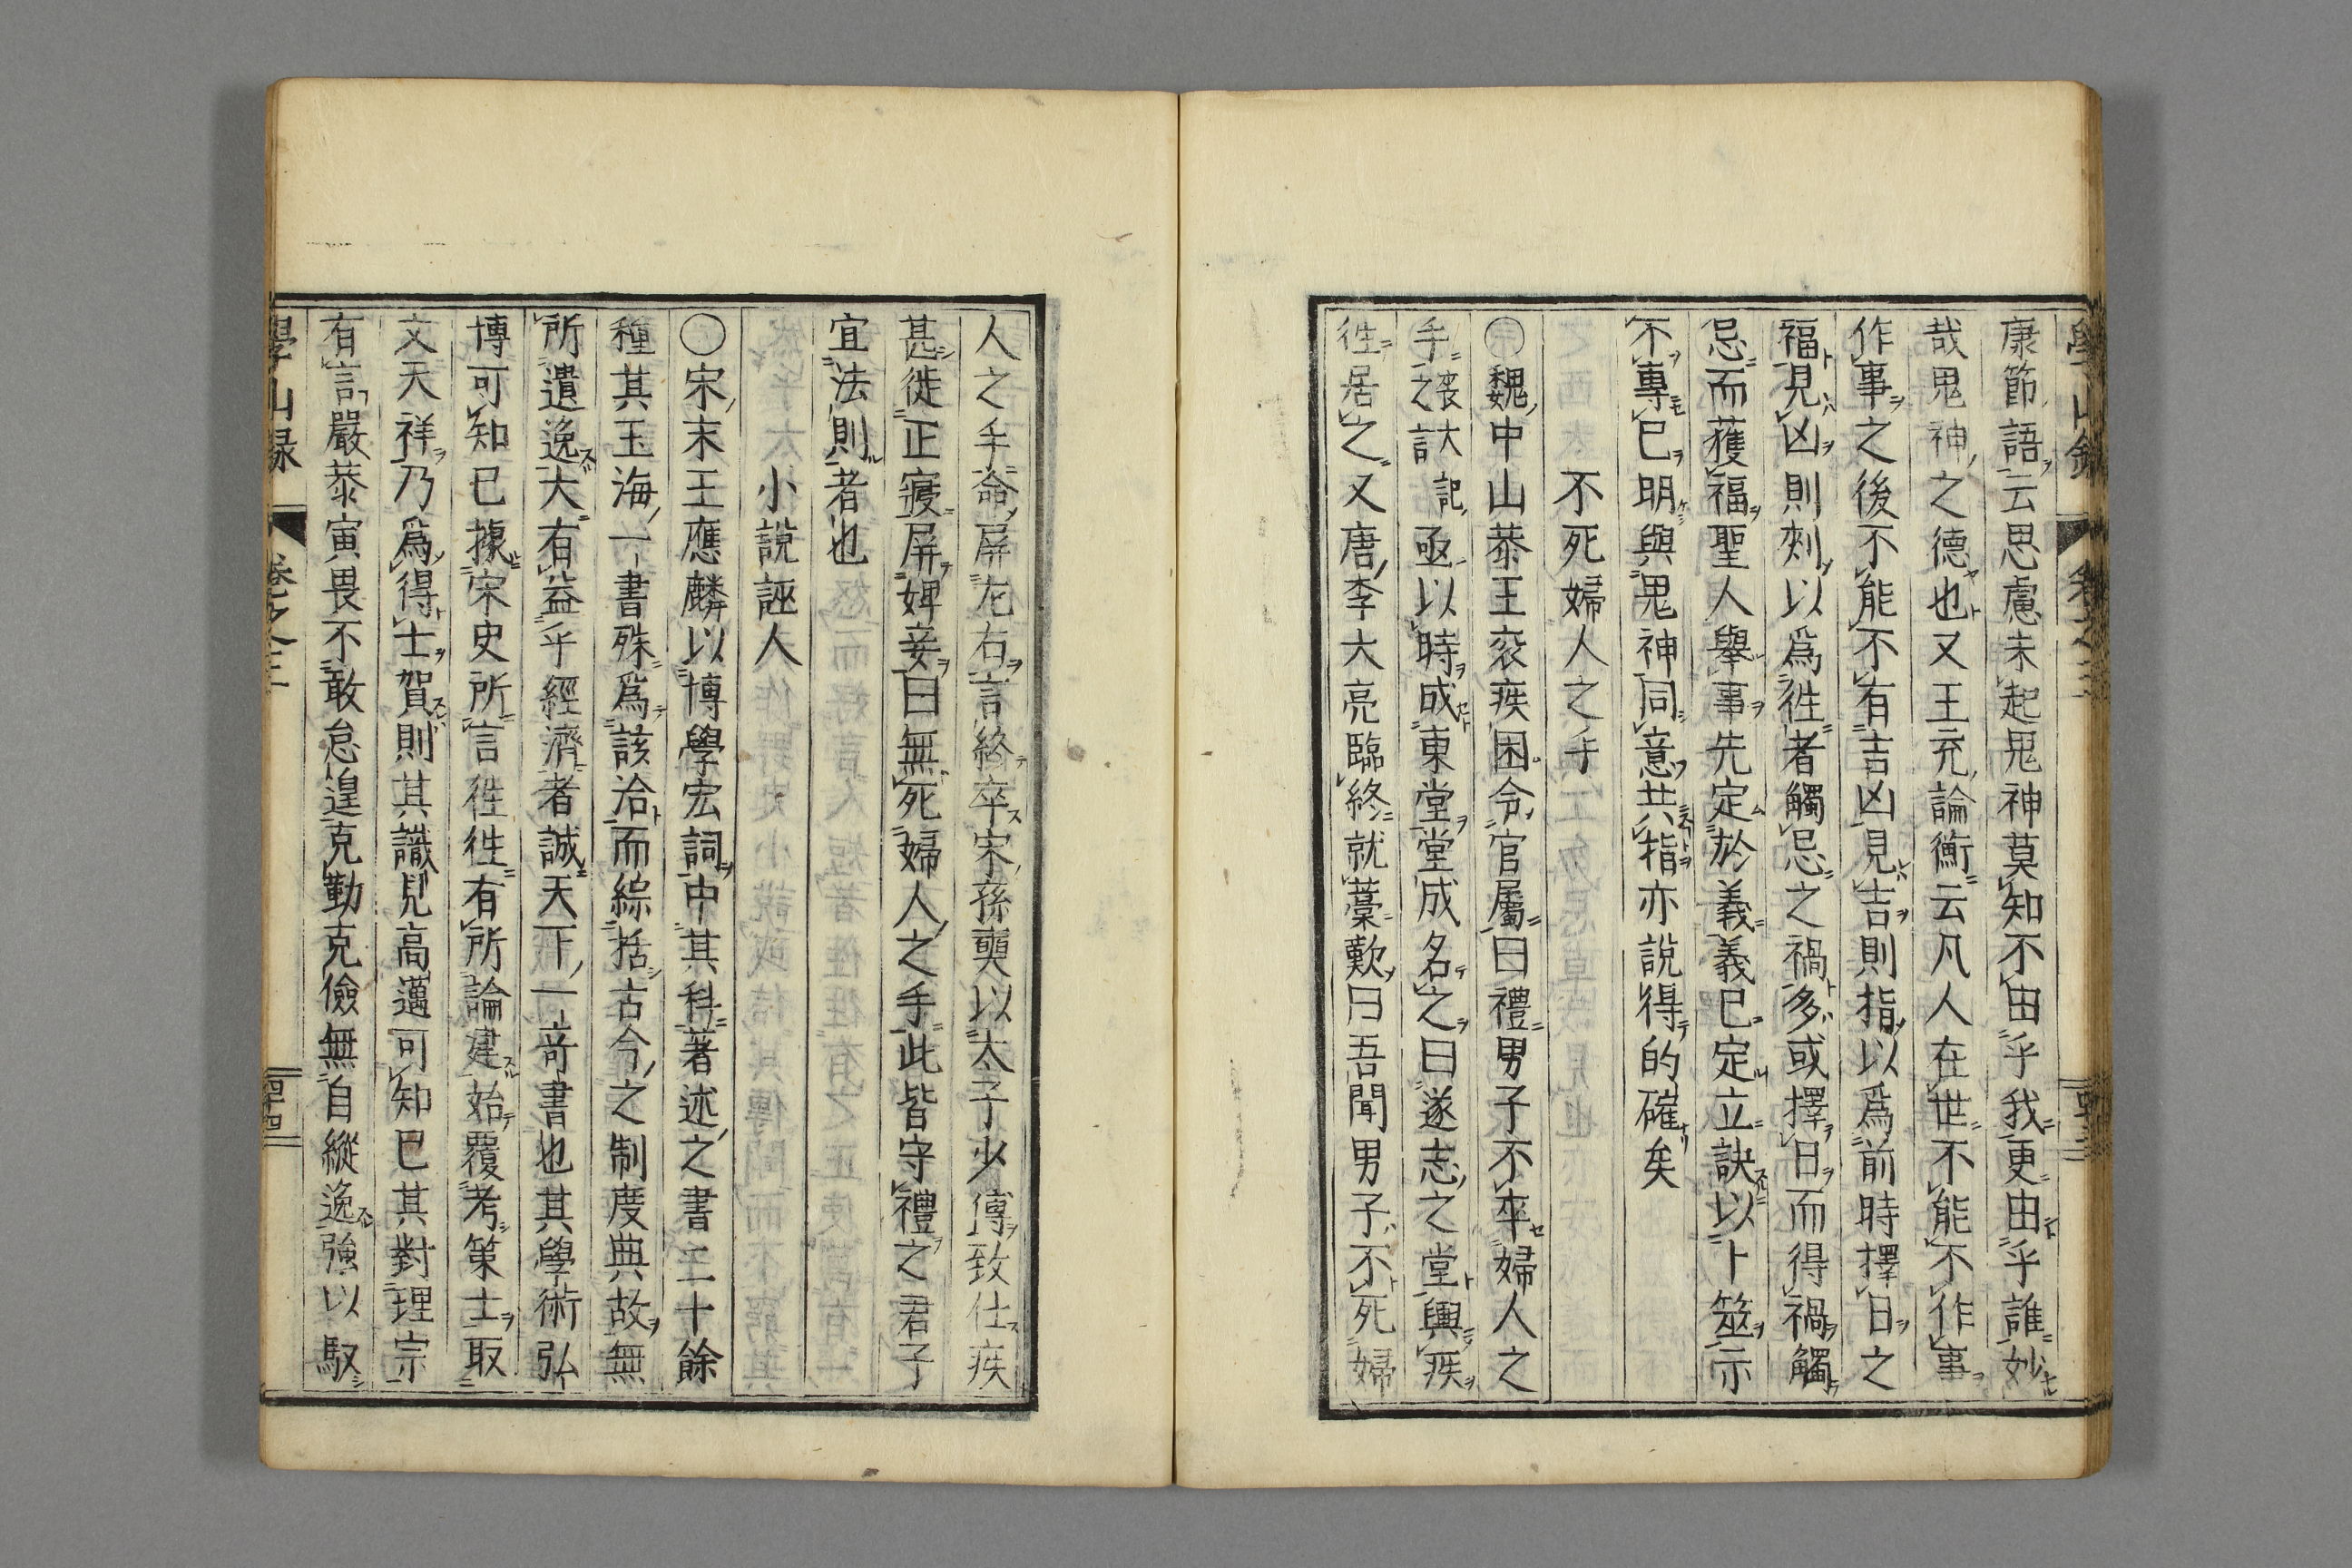 康節語云思慮未起鬼神莫知不由乎我更由乎誰妙
哉鬼神之德也又王充論衡云凡人在世不能不作事
作事之後不能不有吉凶見吉則指以爲前時擇日之
福見凶則刾以爲徃者觸忌之禍多或擇日而得禍觸
忌而獲福聖人擧事先定於義義已定立訣以卜筮示
不專已明與鬼神同意共指亦說得的確矣
不死婦人之手
〇魏中山恭王衮疾困令官屬曰禮男子不卒婦人之
手喪大記亟以時成東堂堂成名之曰遂志之堂輿疾
徃居之又唐李大亮臨終就藁歎曰吾聞男子不死婦
人之手命屏左右言終卒宋孫奭以太子少傅致仕疾
甚徙正寢屏婢妾曰無死婦人之手此皆守禮之君子
宜法則者也
小說誣人
〇宋末王應麟以博學宏詞中其科著述之書二十餘
種其玉海一書殊爲該洽而綜括古今之制度典故無
所遺逸大有益乎經濟者誠天下一竒書也其學術弘
博可知已據宋史所言徃徃有所論建始覆考策士取
文天祥乃爲得士賀則其識見高邁可知已其對理宗
有言嚴恭寅畏不敢怠遑克勤克儉無自縱逸強以馭
學山録 卷之三